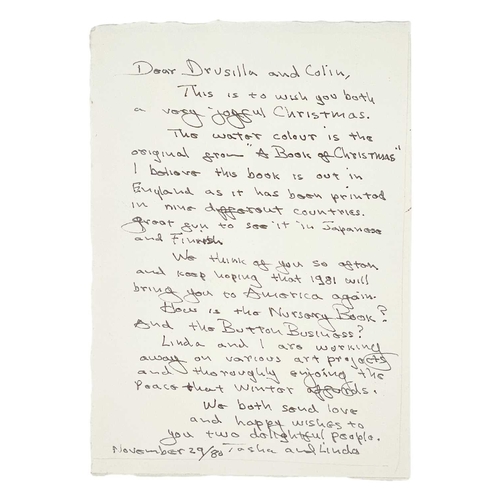 Dear Drusilla and Colin,
This is to wish you both
a very joyful Christmas.
The water colour is the
original from "A Book of Christmas"
I believe this book is out in
England as it has been printed
in nine different countries.
Great fun to see it in Japanese
and Finnish
We think of you so often
and keep hoping that 1981 will
bring you to America again.
How is the Nursery Book?
And the Button Business?
Linda and I are working
away on various art projects
and thoroughly enjoying the
peace that winter affords.
We both send love
and happy wishes to
you two delightful people.
November 29/80 Tasha and Linda